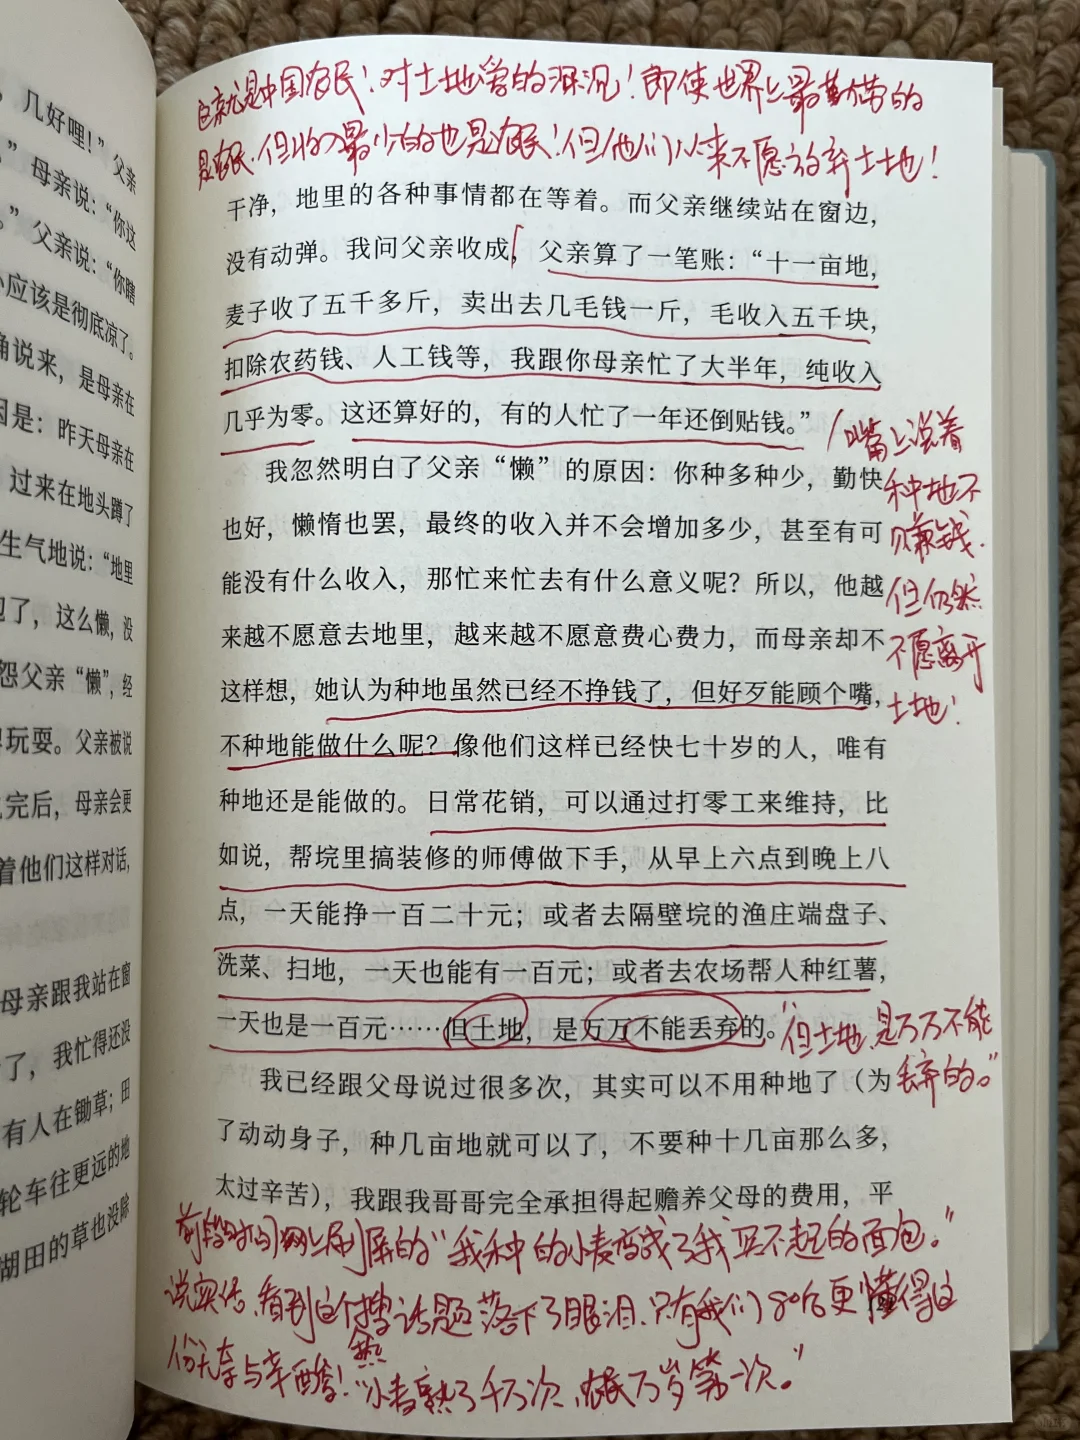 ，几好哩！”父亲
”母亲说：“你这
”父亲说：“你瞎
心应该是彻底凉了。
确说来，是母亲在
因是：昨天母亲在
过来在地头蹲了
生气地说：“地里
包了，这么懒，没
怨父亲“懒”，经
里玩耍。父亲被说
完后，母亲会更
着他们这样对话，
母亲跟我站在窗
了，我忙得还没
有人在锄草；田
轮车往更远的地
湖田的草也没除
这就是中国农民！对土地爱的深沉！即使世界上最勤劳的
是农民，但收入最少的也是农民！但他们从来不愿放弃土地！
干净，地里的各种事情都在等着。而父亲继续站在窗边，
没有动弹。我问父亲收成，父亲算了一笔账：“十一亩地，
麦子收了五千多斤，卖出去几毛钱一斤，毛收入五千块，
扣除农药钱、人工钱等，我跟你母亲忙了大半年，纯收入
几乎为零。这还算好的，有的人忙了一年还倒贴钱。”
我忽然明白了父亲“懒”的原因：你种多种少，勤快
也好，懒惰也罢，最终的收入并不会增加多少，甚至有可
能没有什么收入，那忙来忙去有什么意义呢？所以，他越
来越不愿意去地里，越来越不愿意费心费力，而母亲却不
这样想，她认为种地虽然已经不挣钱了，但好歹能顾个嘴，
不种地能做什么呢？像他们这样已经快七十岁的人，唯有
种地还是能做的。日常花销，可以通过打零工来维持，比
如说，帮垸里搞装修的师傅做下手，从早上六点到晚上八
点，一天能挣一百二十元；或者去隔壁垸的渔庄端盘子、
洗菜、扫地，一天也能有一百元；或者去农场帮人种红薯，
一天也是一百元……但土地，是万万不能丢弃的。
我已经跟父母说过很多次，其实可以不用种地了（为
了动动身子，种几亩地就可以了，不要种十几亩那么多，
太过辛苦），我跟我哥哥完全承担得起赡养父母的费用，平
嘴上说着
种地不
赚钱，
但仍然
不愿离开
土地！
“但土地，是万万不能
丢弃的。”
前段时间网上刷屏的“我种的小麦变成了我买不起的面包。”
说实话，看到这个热搜话题落下了眼泪，只有我们80后更懂得这
份无奈与辛酸！“小麦熟了千万次，农民万岁第一次。”